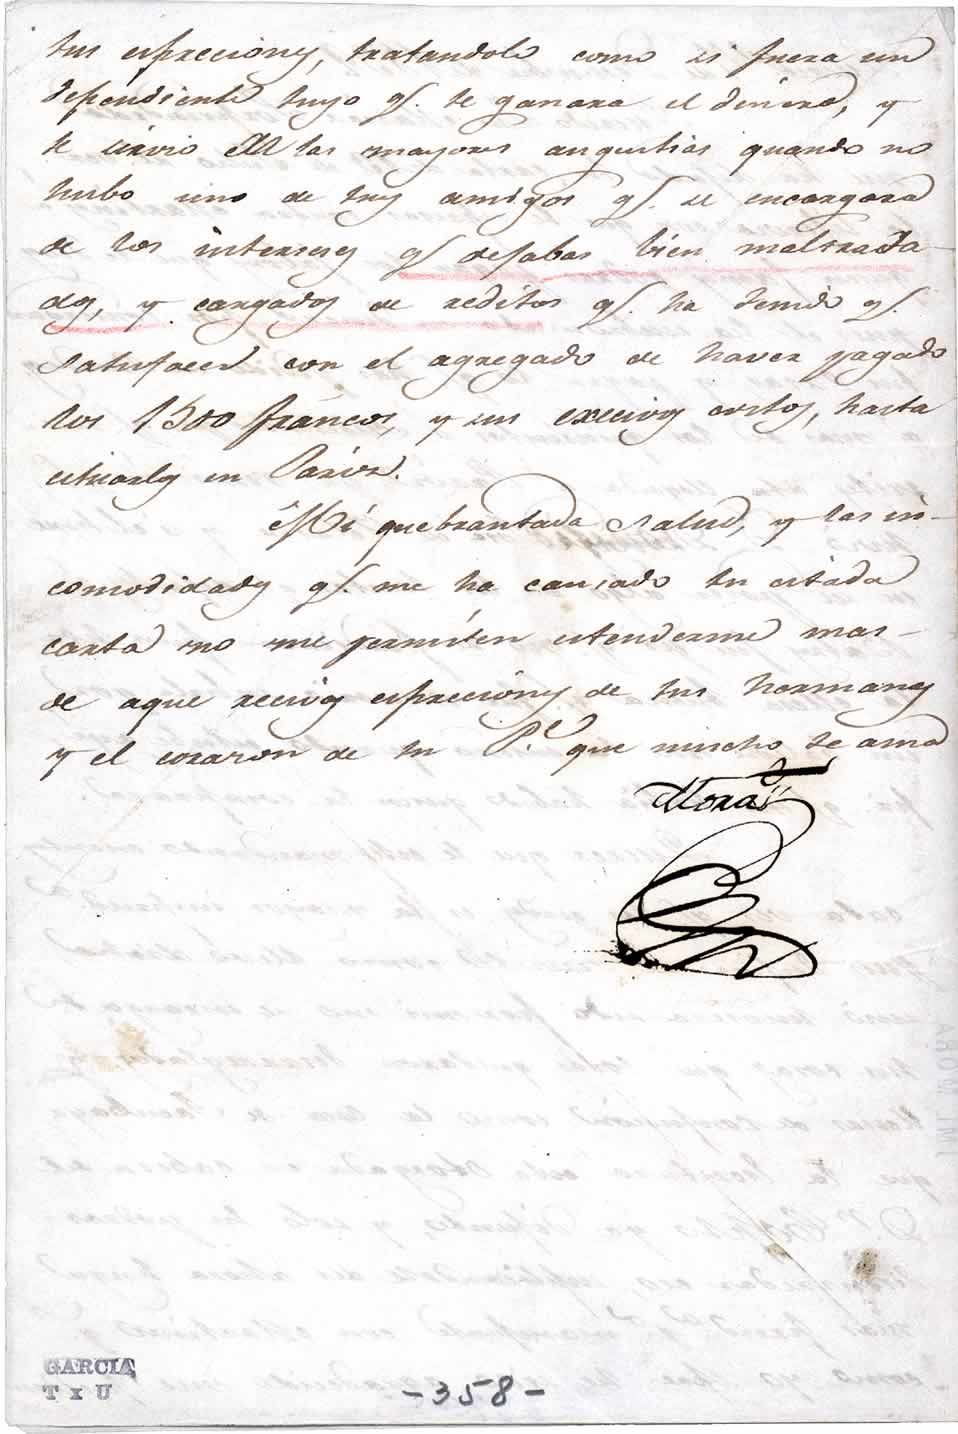 tus espreciones, tratandolo como si fuera un
dependiente tuyo qe. te ganara el dinero, y
te sirvio en las mayores angustias quando no
hubo uno de tus amigos qe. se encargara
de los intereses qe dejabas bien maltrada-
dos, y cargados de reditos qe. ha tenido qe.
satisfacer con el agregado de haver pagado
los 1500 francos, y sus excecivos costos, hasta
situarlos en Paris.
Mi quebrantada salud, y las in-
comodidades qe. me ha causado tu citada
carta no me permiten estenderme mas-
de aque recivas espreciones de tus hermanos
y el corazon de tu Pe. que mucho te ama
Mora
GARCIA
T x U
-358-
JMLMORA